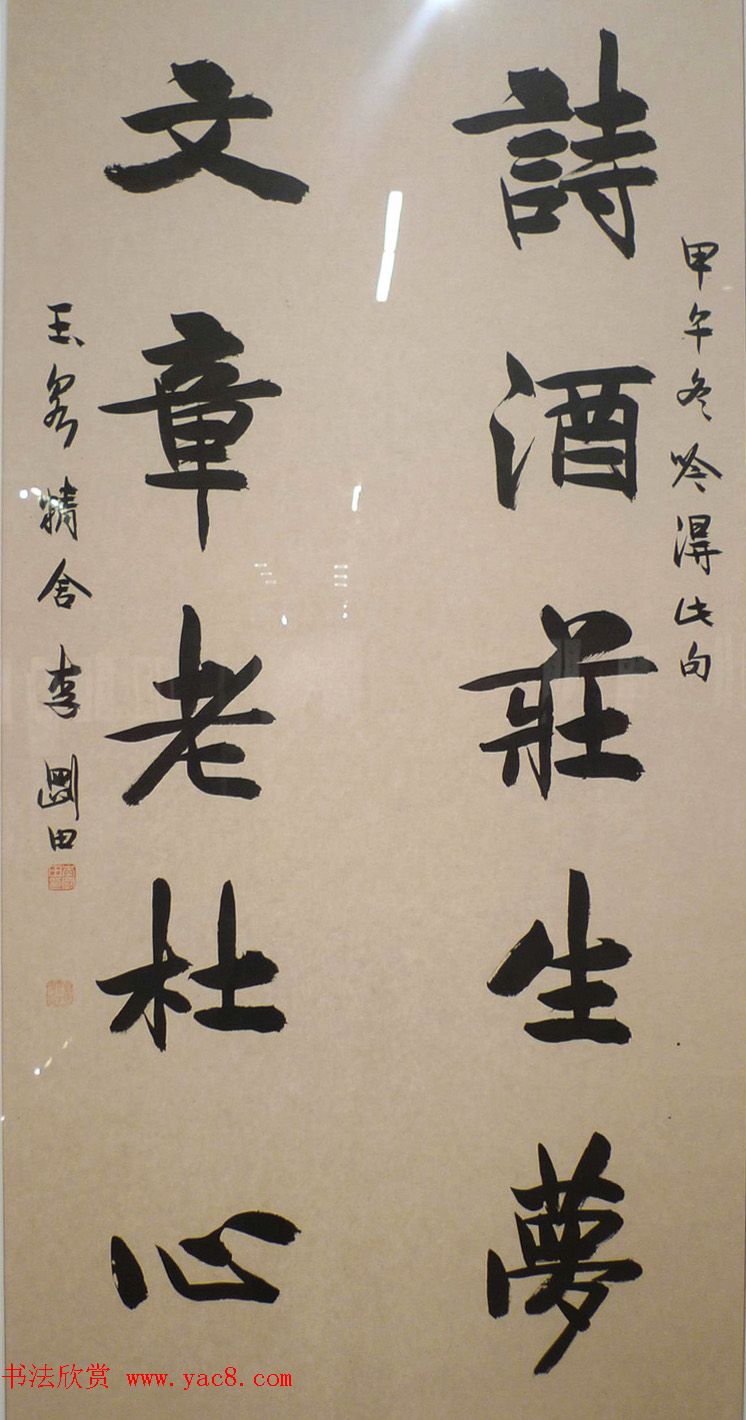 甲午冬吟得此句
詩酒莊生夢
文章老杜心
玉泉精舍李圓田
书法欣赏 www.yac8.com